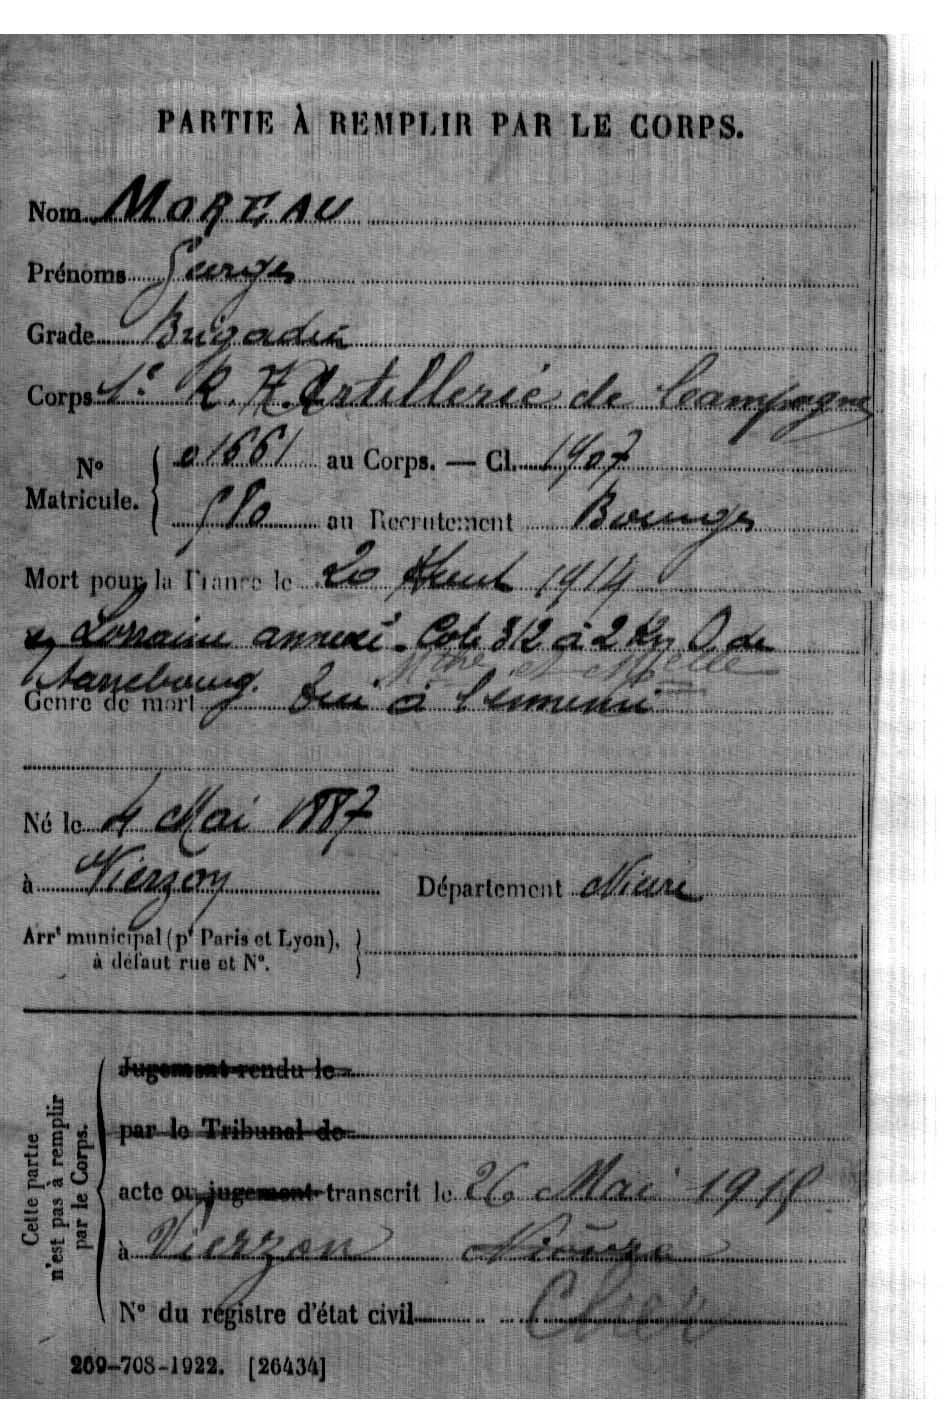 PARTIE À REMPLIR PAR LE CORPS.
Nom MOREAU
Prénoms Georges
Grade Brigadier
Corps 1e R. Artillerie de Campagne
No Matricule. { 01661 au Corps. — Cl. 1907
580 au Recrutement Bourges
Mort pour la France le 20 Août 1914
Lorraine annexée. Cote 312 à 2 Km O. de
Sarrebourg. Mthe et Mselle
Genre de mort Tué à l'ennemi
Né le 4 Mai 1887
à Vierzon Département Nièvre
Arrt municipal (pr Paris et Lyon),
à défaut rue et No.
Cette partie
n'est pas à remplir
par le Corps.
Jugement rendu le
par le Tribunal de
acte ou jugement transcrit le 26 Mai 1915
à Vierzon Nièvre
Cher
No du registre d'état civil
269-708-1922. [26434]